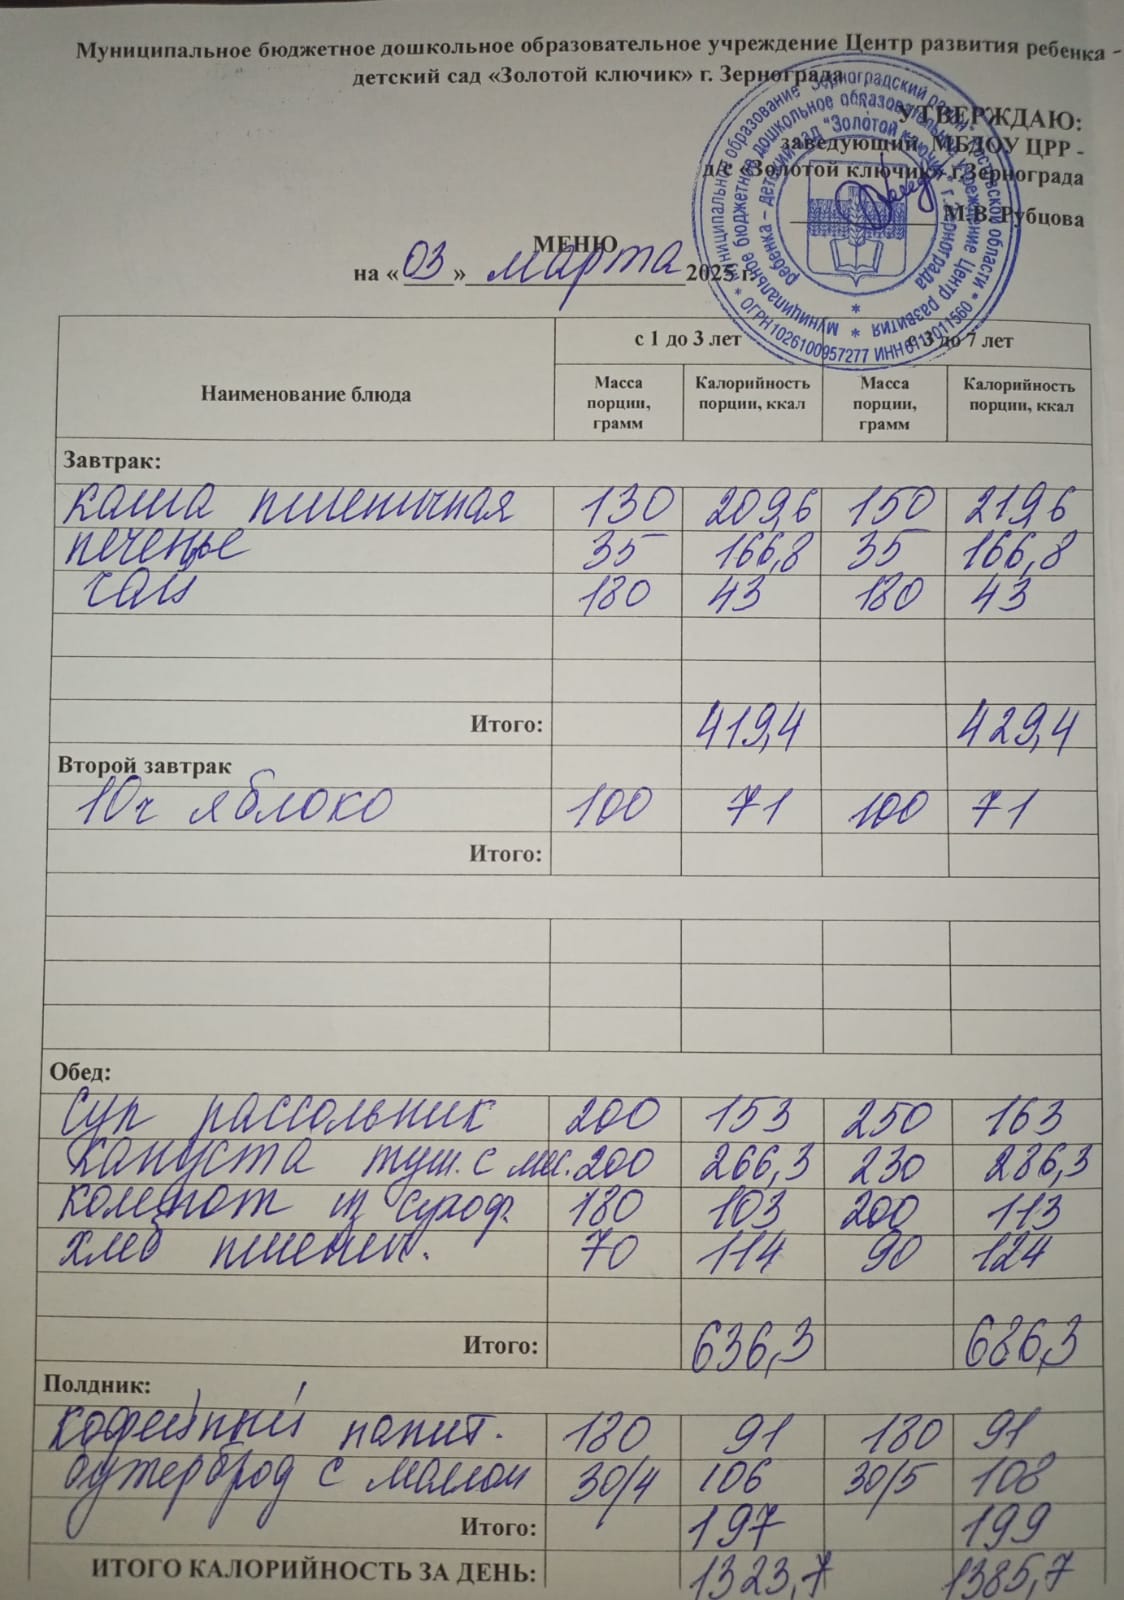 Муниципальное бюджетное дошкольное образовательное учреждение Центр развития ребенка -
детский сад «Золотой ключик» г. Зернограда
УТВЕРЖДАЮ:
заведующий МБДОУ ЦРР -
д/с «Золотой ключик» г.Зернограда
М.В. Рубцова
МЕНЮ
на «03» марта 2025 г.
с 1 до 3 лет с 3 до 7 лет
Наименование блюда Масса порции, грамм Калорийность порции, ккал Масса порции, грамм Калорийность порции, ккал
Завтрак:
каша пшеничная 130 209,6 150 219,6
печенье 35 166,8 35 166,8
чай 180 43 180 43
Итого: 419,4 429,4
Второй завтрак
10ч яблоко 100 71 100 71
Итого:
Обед:
Суп рассольник 200 153 250 163
капуста туш. с мяс. 200 266,3 230 286,3
компот из сухоф. 180 103 200 113
хлеб пшенич. 70 114 90 124
Итого: 636,3 686,3
Полдник:
кофейный напит. 180 91 180 91
бутерброд с маслом 30/4 106 30/5 108
Итого: 197 199
ИТОГО КАЛОРИЙНОСТЬ ЗА ДЕНЬ: 1323,7 1385,7